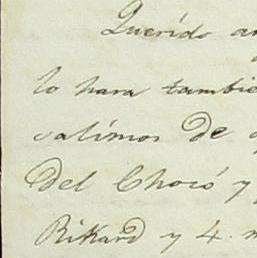 Querído
lo hara tambie
salímos de
del Chocó y
Rikard y 4.